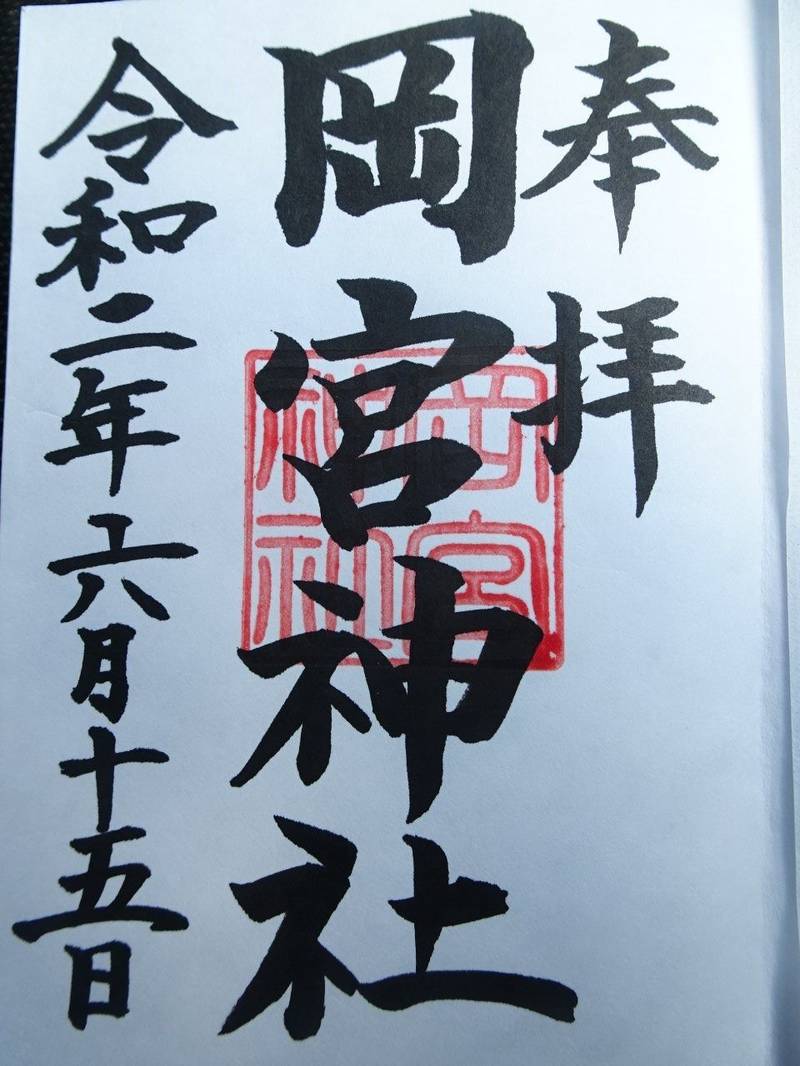 奉拝
岡宮神社
岡宮神社
令和二年六月十五日